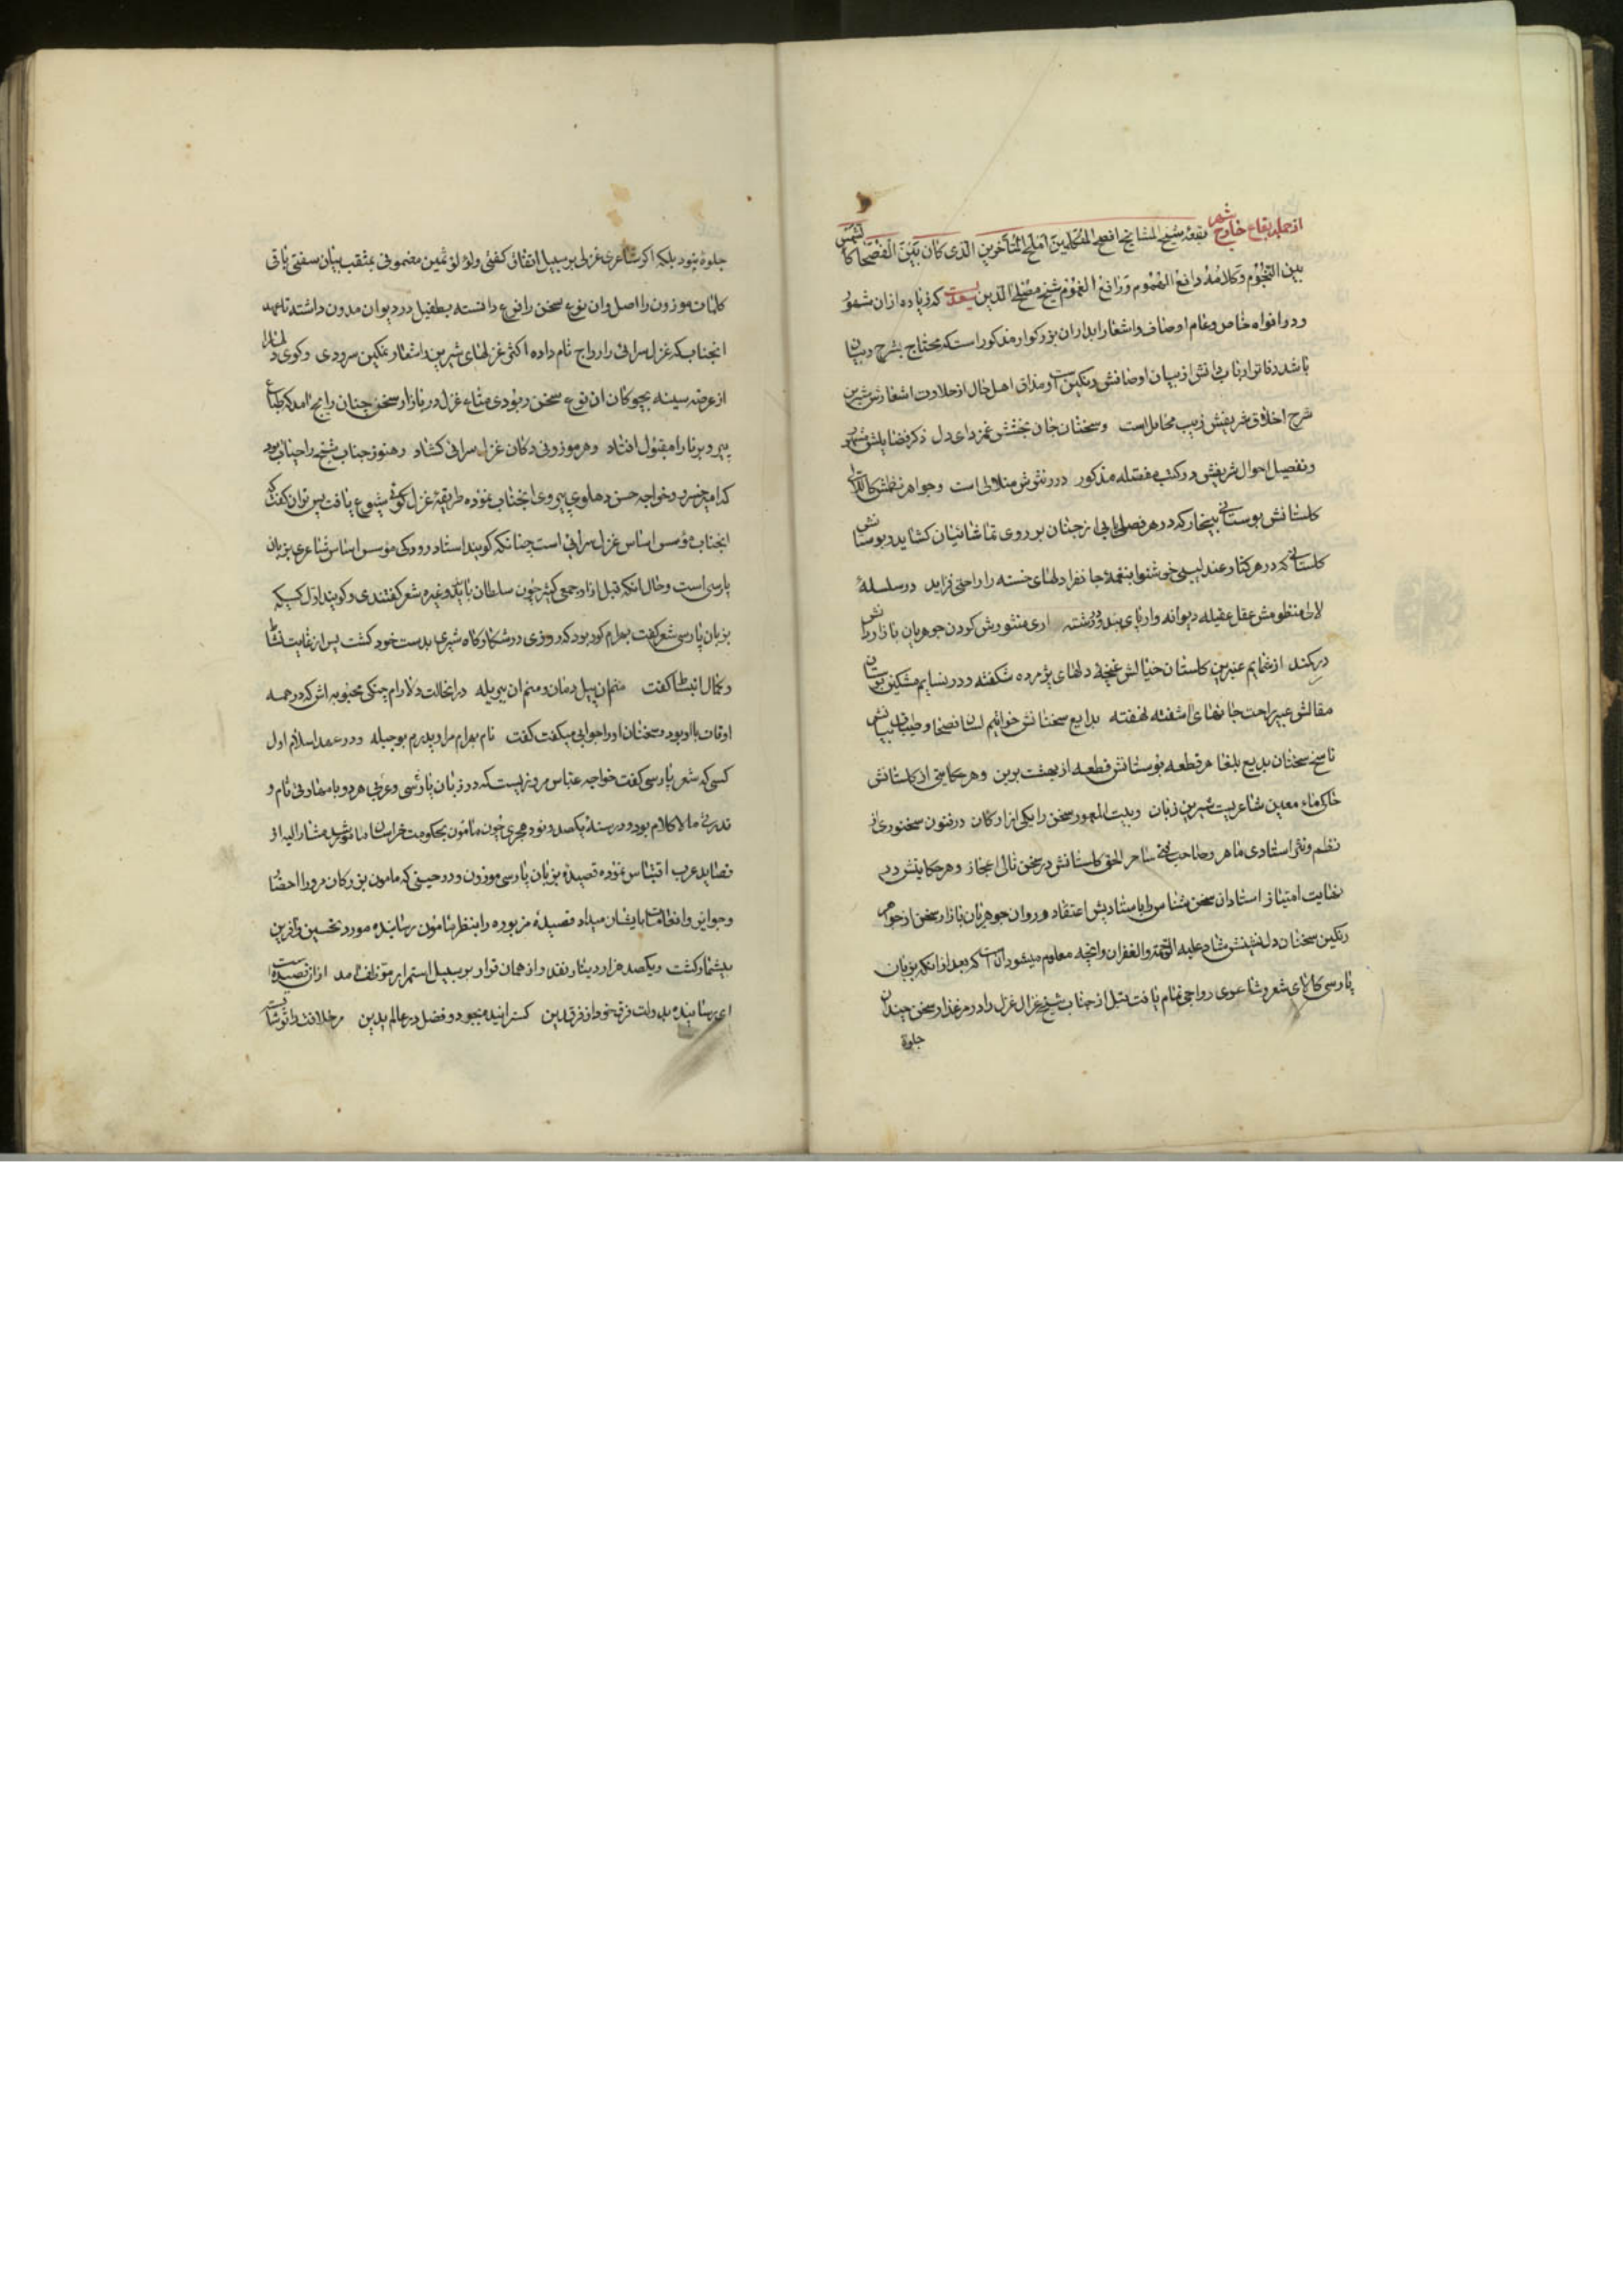 از جمله بقاع خارج شهر بقعه شیخ المشایخ افصح المتکلمین املح المتاخرین الذی کان بین الفصحا کالشمس
بین النجوم و کلامه دافع الهموم و رافع الغموم شیخ مصلح الدین سعدیست که زیاده از ان
و در افواه خاص و عام اوصاف و اشعار ابدار ان بزرکوار مذکور است که محتاج بشرح و بیان
باشد دفاتر ارباب دانش از بیان اوصافش رنکین است و مذاق اهل حال از حلاوت اشعارش شیرین
شرح اخلاق شریفش زیب محافل است و سخنان جان بخشش غمزدای دل ذکر فضایلش مشهور
و تفصیل احوال شریفش در کتب مفصله مذکور درر نثرش متلالی است و جواهر نظمش کاللالی
کلستانش بوستانی بیخار که در هر فصلی بابی از جنان بر روی تماشائیان کشاید و بوستانش
کلستانی که در هر کنار عندلیبی خوشنوا بنغمه جانفزا دلهای خسته را راحتی فزاید در سلسله
لالی منظومش عقل عقیله دیوانه وار پای بند و در رشته اری منثورش کردن جوهریان بازار دانش
در کمند از شمایم عنبرین کلستان خیالش غنچه دلهای پژمرده شکفته و در نسایم مشکین بوستان
مقالش عبیر راحت جانهای اشفته نهفته بدایع سخنانش خواتیم لسان فصحا و طیبات بیانش
ناسخ سخنان بدیع بلغا هر قطعه بوستانش قطعه از بهشت برین و هر حکایتی از کلستانش
خاکی ماء معین شاعریست شیرین زبان و بیت المعمور سخن را یکی از ارکان در فنون سخنوری از
نظم و نثر استادی ماهر و صاحب فنی ساحر الحق کلستانش در سخن تالی اعجاز و هر حکایتش در
نهایت امتیاز استادان سخن شناس را باستادیش اعتقاد و روان جوهریان بازار سخن از جواهر
رنکین سخنان دلنشینش شاد علیه الرحمة و الغفران و انچه معلوم میشود ان است که بعد از انکه بزبان
پارسی کالای شعر و شاعری رواجی تمام یافت قبل از جناب شیخ غزال غزل را در مرغزار سخن چندان
جلوه
جلوه نبود بلکه اکر شاعری غزلی بر سبیل اتفاق کفتی و لؤلؤ ثمین مضمونی بمثقب بیان سفتی باقی
کلمات موزون را اصل و ان نوع سخن را فرع دانسته بطفیل در دیوان مدون داشته تا عهد
انجناب که غزل سرائی را رواج تام داده اکثر غزلهای شیرین و اشعار نمکین سرودی و کوی دلها را
از عرصه سینه بچوکان ان نوع سخن ربودی متاع غزل در بازار سخن چنان رایج امد که طباع
پیر و برنا را مقبول افتاد و هر موزونی دکان غزل سرائی کشاد و هنوز جناب شیخ در حیات بود
که امیر خسرو و خواجه حسن دهلوی پیروی انجناب نموده طریقه غزل کوئی شیوع یافت پس توان کفت که
انجناب مؤسس اساس غزل سرائی است چنانکه کویند استاد رودکی مؤسس اساس شاعری بزبان
پارسی است و حال انکه قبل از او جمعی کثیر چون سلطان و غیره شعر کفتندی و کویند اول کسیکه
بزبان پارسی شعر کفت بهرام کور بود که روزی در شکارکاه شیری بدست خود کشت پس از غایت نشاط
و کمال انبساط کفت منم ان پیل دمان و منم ان ببر یله در انحالت دلارام چنکی محبوبه اش که در همه
اوقات با او بود و سخنان او را جوابی میکفت کفت نام بهرام مرا و پدرم بوجبله و در عهد اسلام اول
کسی که شعر پارسی کفت خواجه عباس مروزیست که در زبان پارسی و عربی هر دو با مهارتی تام و
قدرتی مالا کلام بود و در سنه یکصد و نود هجری چون مامون بحکومت خراسان مامور شد مشار الیه از
قصاید عرب اقتباس نموده قصیده بزبان پارسی موزون و در حینی که مامون بزرکان مرو را احضار
و جوایز و انعامات بایشان میداد قصیده مزبوره را بنظر مامون رسانیده مورد تحسین و آفرین
بیشمار کشت و یکصد هزار دینار نقد و از همان قرار بر سبیل استمرار موظف آمد از ان قصیده است
ای رسانیده بدولت فرق خود از فرقدین کسترانیده بجود و فضل در عالم یدین مر خلافت را تو شایسته